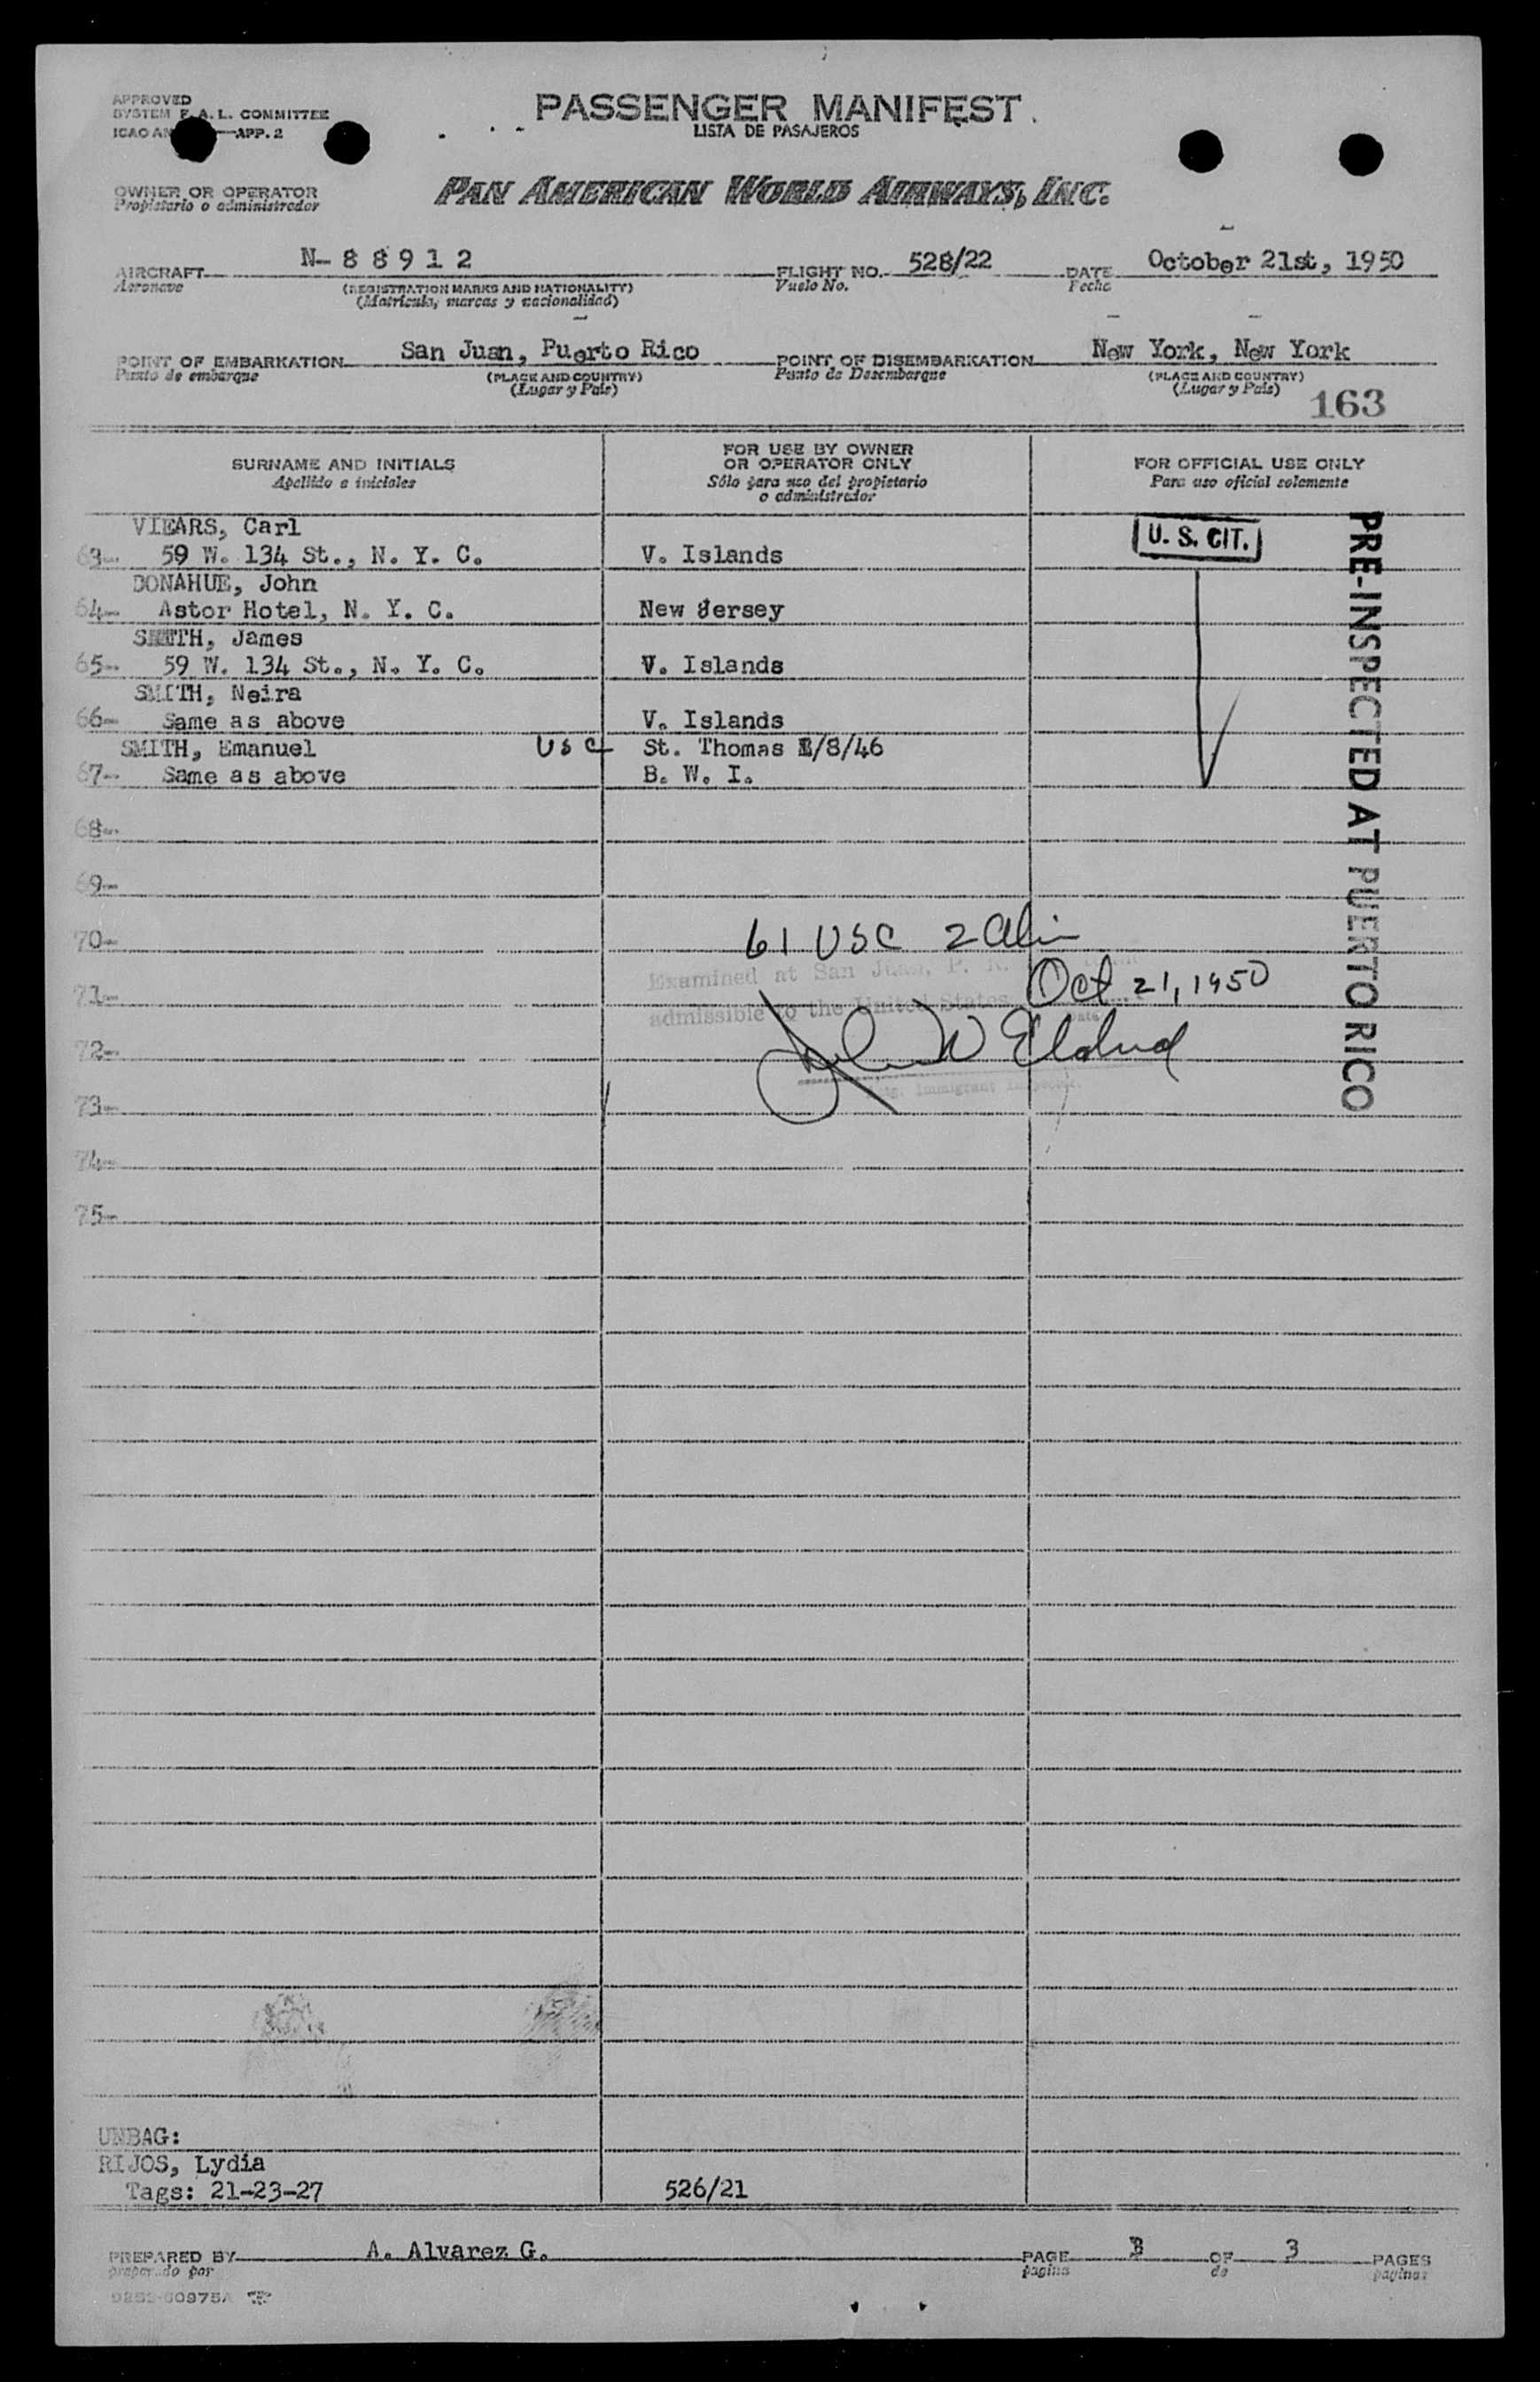 APPROVED
SYSTEM F.A.L. COMMITTEE
ICAO AN —APP. 2
PASSENGER MANIFEST
LISTA DE PASAJEROS
OWNER OR OPERATOR
Propietario o administrador
PAN AMERICAN WORLD AIRWAYS, INC.
AIRCRAFT N-88912 FLIGHT NO. 528/22 DATE October 21st, 1950
Aeronave (REGISTRATION MARKS AND NATIONALITY) Vuelo No. Fecha
(Matrícula, marcas y nacionalidad)
POINT OF EMBARKATION San Juan, Puerto Rico POINT OF DISEMBARKATION New York, New York
Punto de embarque (PLACE AND COUNTRY) Punto de Desembarque (PLACE AND COUNTRY)
(Lugar y País) (Lugar y País)
163
SURNAME AND INITIALS FOR USE BY OWNER OR OPERATOR ONLY FOR OFFICIAL USE ONLY
Apellido e iniciales Sólo para uso del propietario o administrador Para uso oficial solamente
VIEARS, Carl
63- 59 W. 134 St., N. Y. C. V. Islands U. S. CIT.
DONAHUE, John
64- Astor Hotel, N. Y. C. New Jersey
SMITH, James
65- 59 W. 134 St., N. Y. C. V. Islands
SMITH, Neira
66- Same as above V. Islands
SMITH, Emanuel USC St. Thomas /8/46
67- Same as above B. W. I.
68-
69-
70- 61 USC 2 Alien
Examined at San Juan, P. R.
71- Oct 21, 1950
admissible to the United States
Date
72-
Immigrant Inspector.
73-
74-
75-
PRE-INSPECTED AT PUERTO RICO
UNBAG:
RIJOS, Lydia
Tags: 21-23-27 526/21
PREPARED BY A. Alvarez G. PAGE 3 OF 3 PAGES
preparado por página de páginas